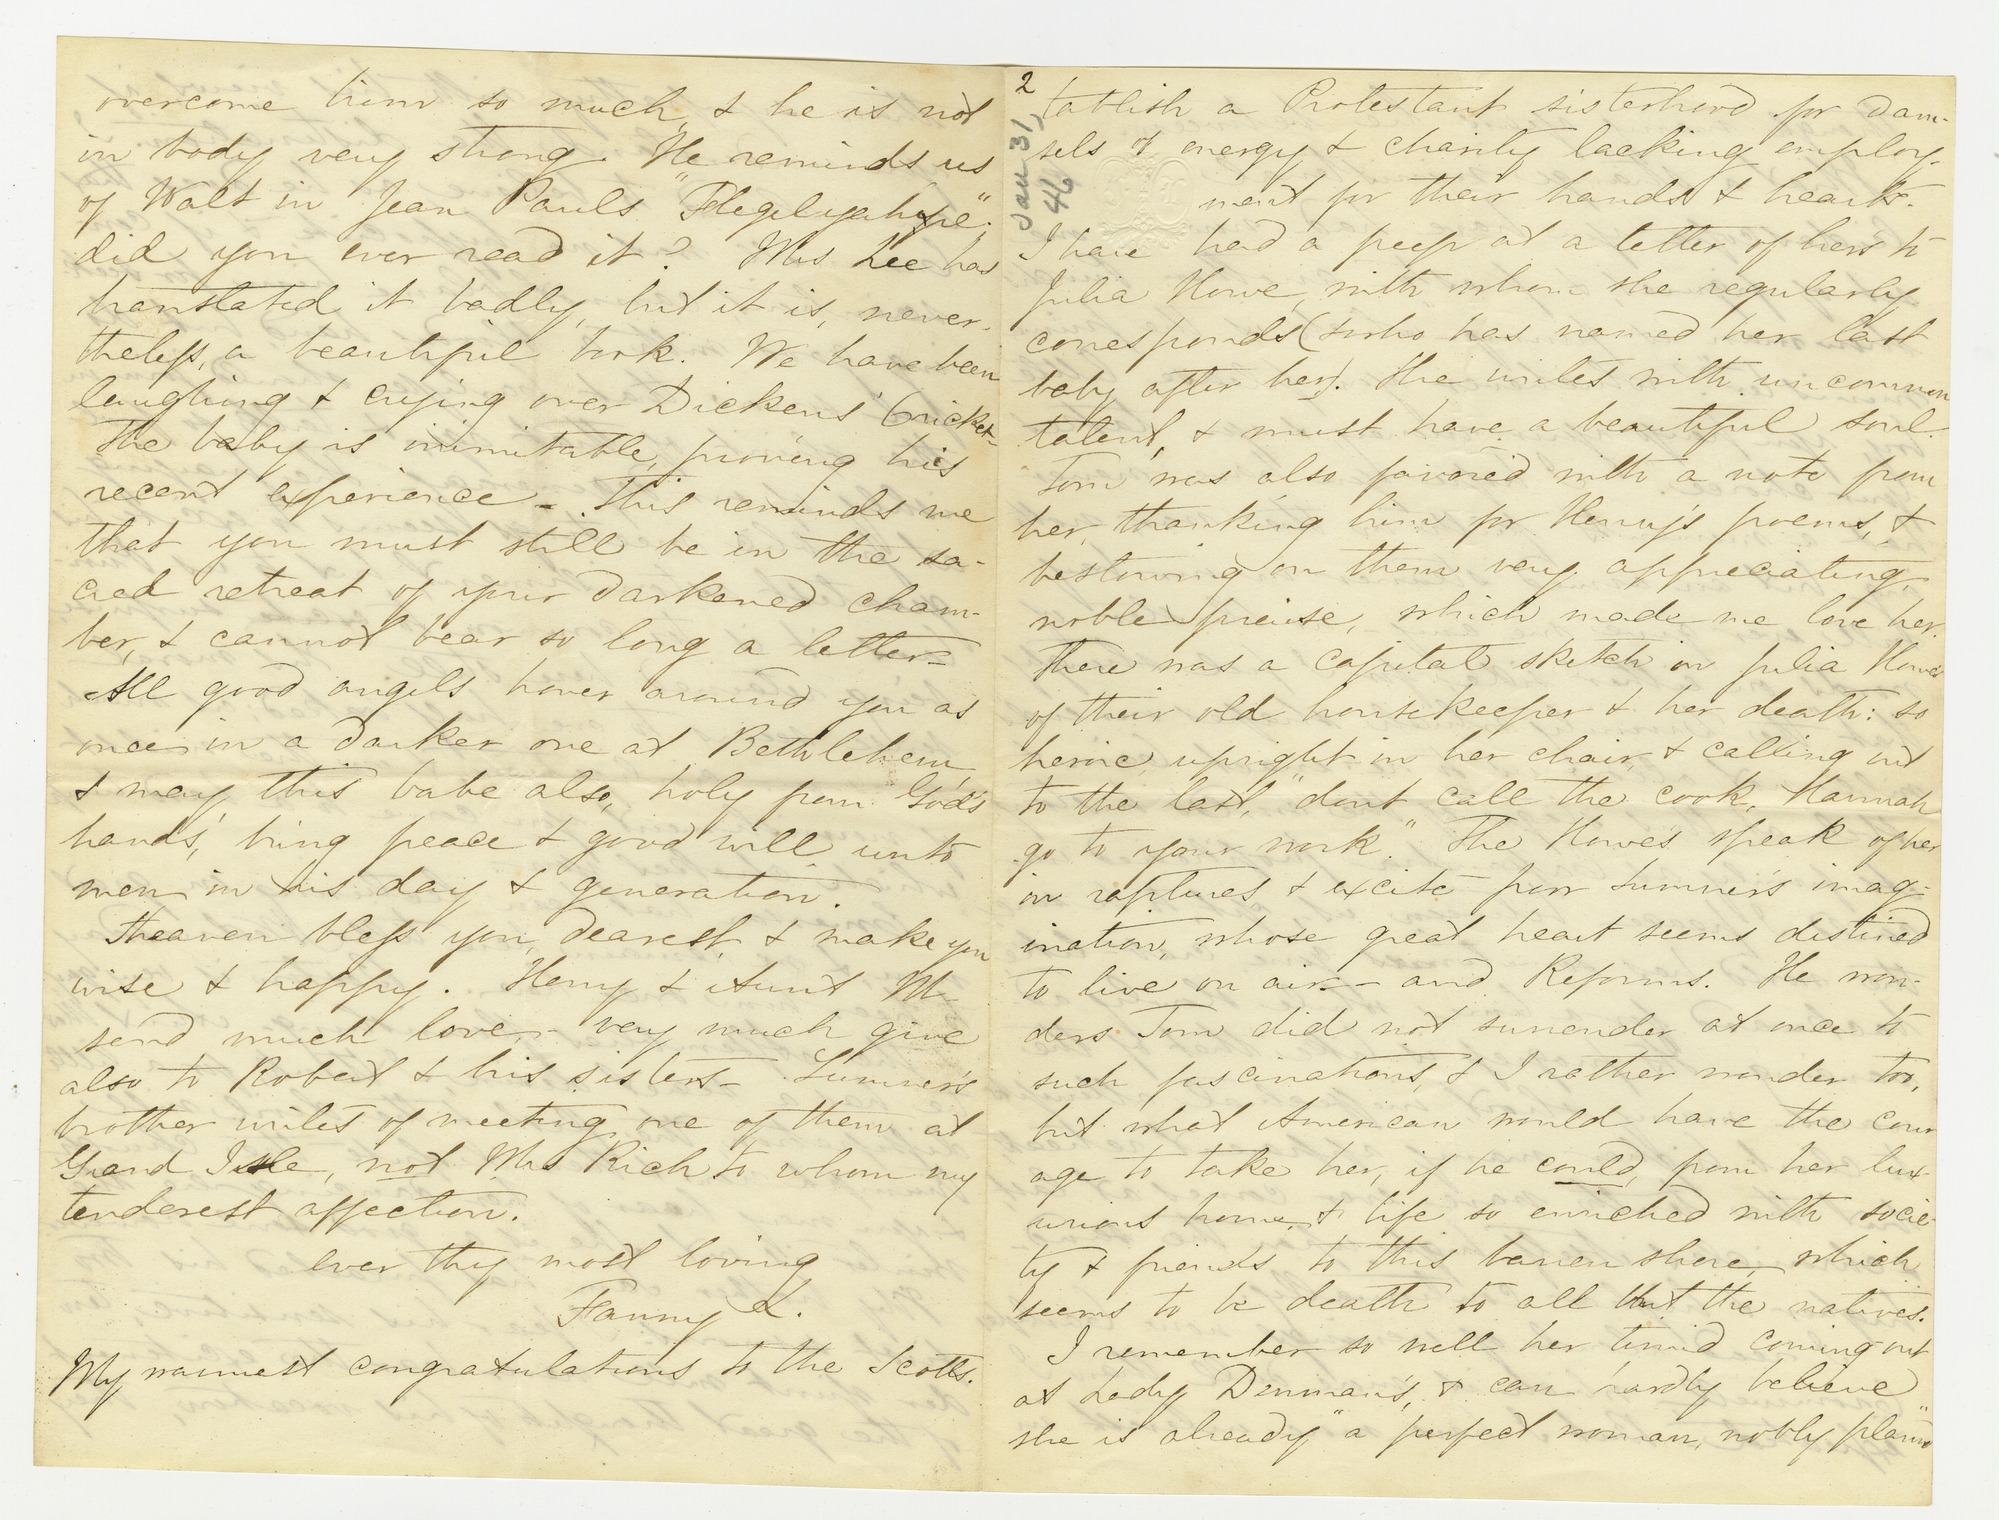 overcome him so much, & he is not
in body very strong. He reminds us
of Walt in Jean Pauls "Flegeljahre".
did you ever read it? Mrs Lee has
translated it badly, but it is, never-
theless, a beautiful book. We have been
laughing & crying over Dickens' Cricket-
The baby is inimitable, proving his
recent experience - This reminds me
that you must still be in the sa-
cred retreat of your darkened cham-
ber, & cannot bear so long a letter-
All good angels hover around you as
once in a darker one at Bethlehem,
& may this babe also, holy from God's
hands, bring peace & good will unto
men in his day & generation.
Heaven bless you, dearest, & make you
wise & happy. Henry & Aunt M
send much love - very much give
also to Robert & his sisters - Sumner's
brother writes of meeting one of them at
Grand Isle, not Mrs Rich to whom my
tenderest affection.
ever thy most loving
Fanny L.
My warmest congratulations to the Scotts.
2
Jan 31,
46
tablish a Protestant sisterhood for dam-
sels of energy & charity lacking employ-
ment for their hands & hearts.
I have had a peep at a letter of hers to
Julia Howe, with whom she regularly
corresponds (& who has named her last
baby after her). She writes with uncommon
talent, & must have a beautiful soul.
Tom was also favored with a note from
her, thanking him for Henry's poems, &
bestowing on them very appreciating,
noble praise, which made me love her.
There was a capital sketch in Julia Howe's
of their old housekeeper & her death: so
heroic, upright in her chair, & calling out
to the last, "dont call the cook, Hannah
go to your work." The Howe's speak of her
in raptures & excite poor Sumner's imag-
ination, whose great heart seems destined
to live on air - and Reforms. He won-
ders Tom did not surrender at once to
such fascinations, & I rather wonder too,
but what American would have the cour
age to take her, if he could, from her lux-
urious home & life so enriched with socie-
ty & friends to this barren shore, which
seems to be death to all but the natives.
I remember so well her timid coming-out
at Lady Denman's, & can hardly believe
she is already "a perfect woman, nobly plann'd"